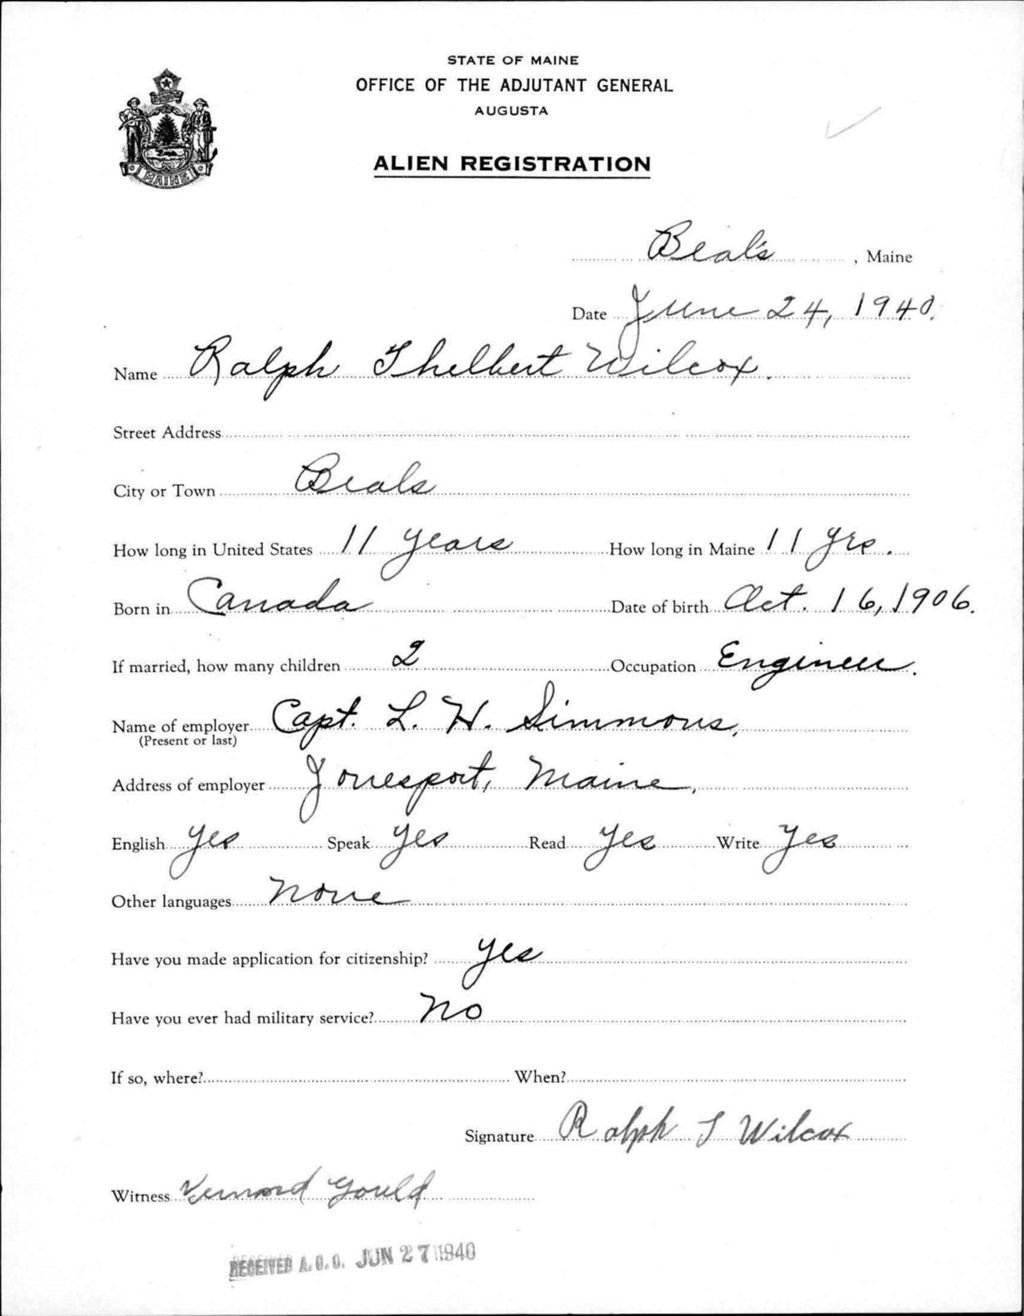 STATE OF MAINE
OFFICE OF THE ADJUTANT GENERAL
AUGUSTA
ALIEN REGISTRATION
MAINE
Beal's, Maine
Date June 24, 1940.
Name Ralph Thelbert Wilcox.
Street Address
City or Town Beals
How long in United States 11 years How long in Maine 11 yrs.
Born in Canada Date of birth Oct. 16, 1906.
If married, how many children 2 Occupation Engineer.
Name of employer Capt. L. H. Simmons,
(Present or last)
Address of employer Jonesport, Maine.
English yes Speak yes Read yes Write yes
Other languages none
Have you made application for citizenship? yes
Have you ever had military service? no
If so, where? When?
Signature Ralph T Wilcox
Witness Gould
RECEIVED A.G.O. JUN 27 1940